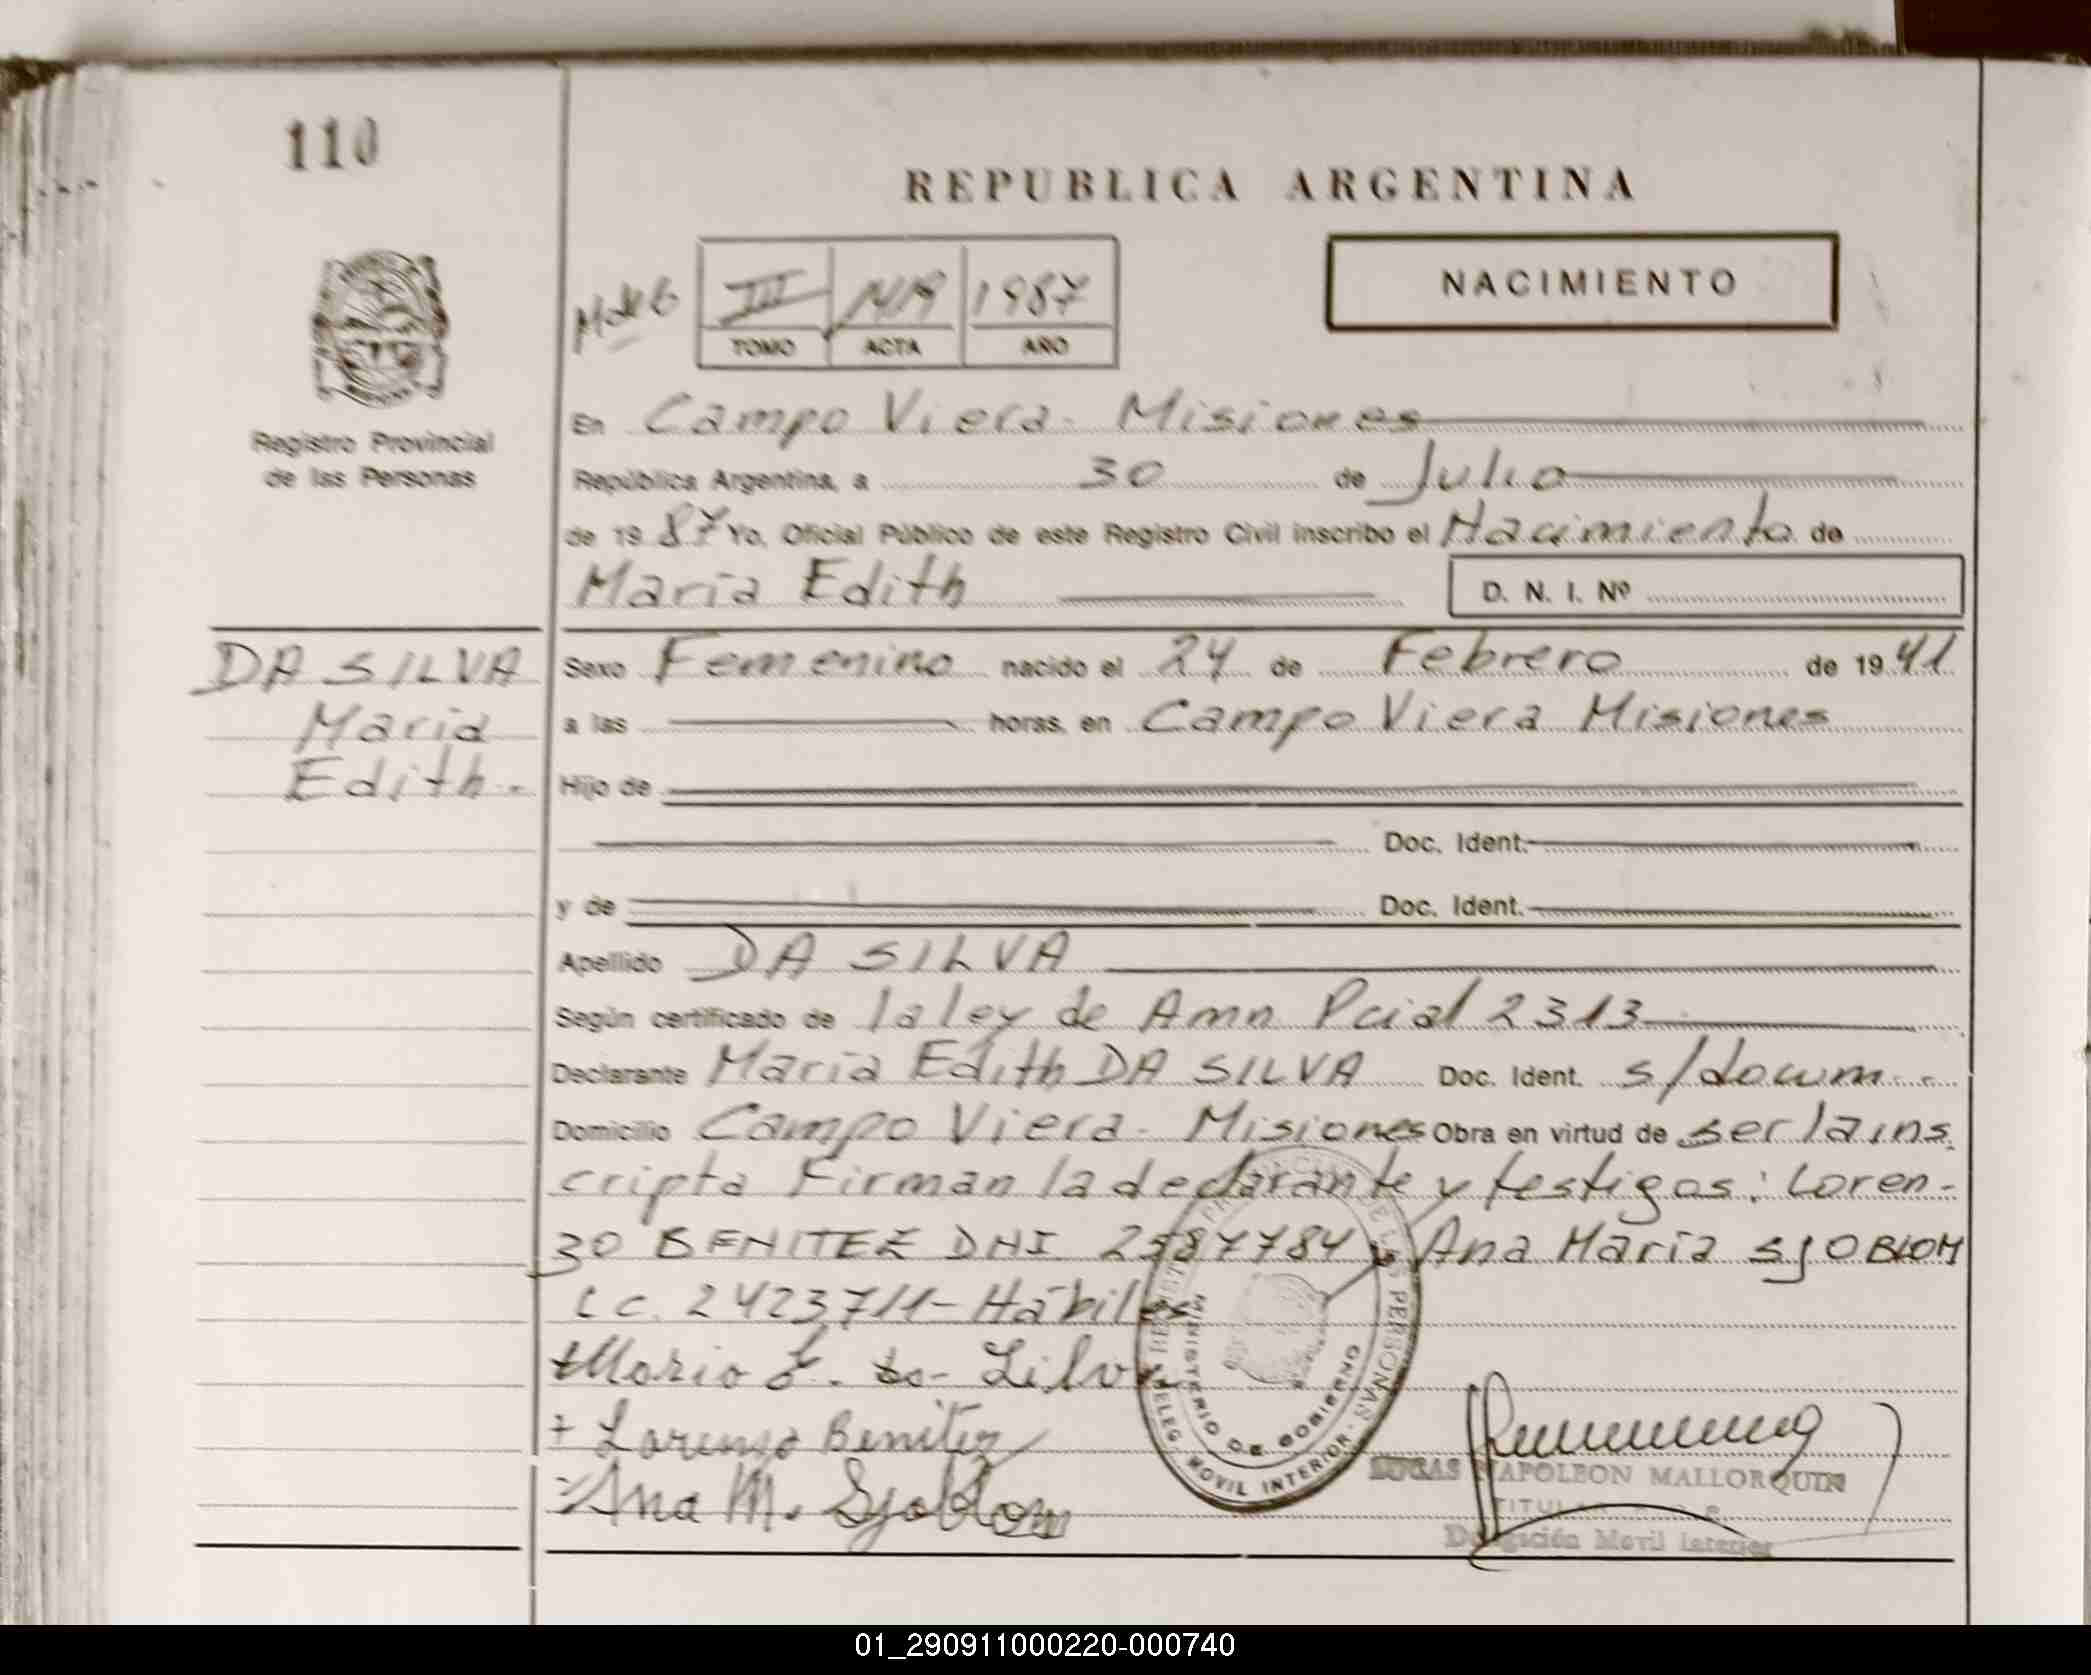 110
REPUBLICA ARGENTINA
NACIMIENTO
III 1987
TOMO ACTA AÑO
Registro Provincial
de las Personas
En Campo Viera - Misiones
República Argentina, a 30 de Julio
de 1987 Yo, Oficial Público de este Registro Civil inscribo el Nacimiento de
María Edith D. N. I. Nº
DA SILVA
María
Edith.
Sexo Femenino nacido el 24 de Febrero de 1941
a las horas, en Campo Viera Misiones
Hijo de
Doc. Ident.
y de Doc. Ident.
Apellido DA SILVA
Según certificado de la ley de Amn Pcial 2313
Declarante María Edith DA SILVA Doc. Ident. s/docum.
Domicilio Campo Viera - Misiones Obra en virtud de ser la ins
cripta Firman la declarante y testigos: Loren-
zo BENITEZ DNI 2587784 y Ana María SJOBLOM
LC. 2423711 - Hábiles
Maria E. da Silva
+ Lorenzo Benitez
Ana M. Sjoblom
MINISTERIO DE GOBIERNO
DELEG. MOVIL INTERIOR
LUCAS NAPOLEON MALLORQUIN
TITULAR
Delegación Movil Interior
01_290911000220-000740